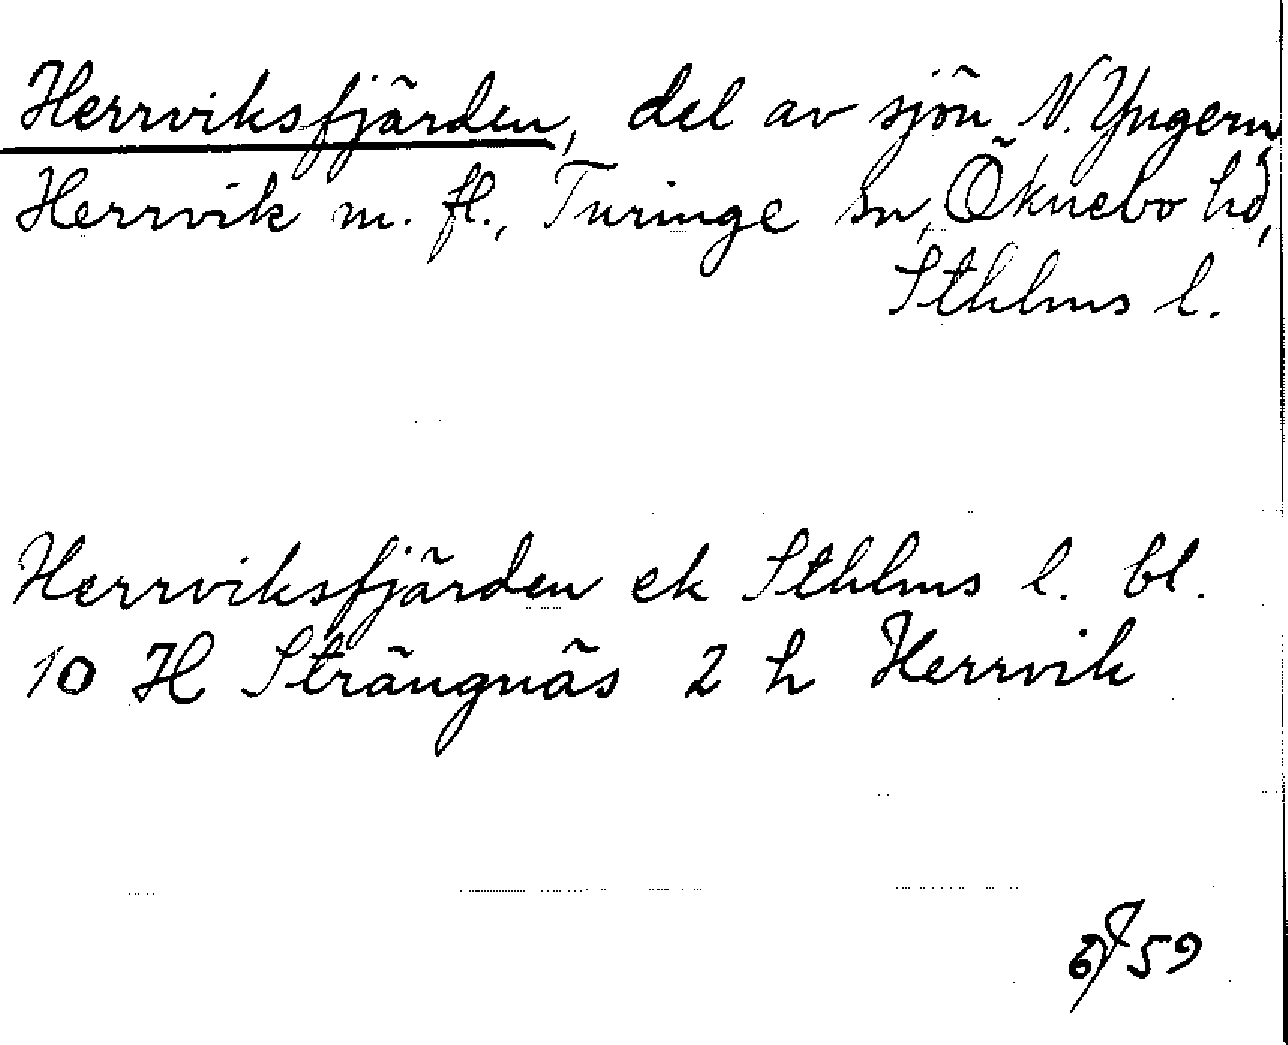 Herrviksfjärden, del av sjön N. Yngern,
Herrvik m. fl., Turinge sn, Öknebo hd,
Sthlms l.
Herrviksfjärden ek Sthlms l. bl.
10 H Strängnäs 2 h Herrvik
59